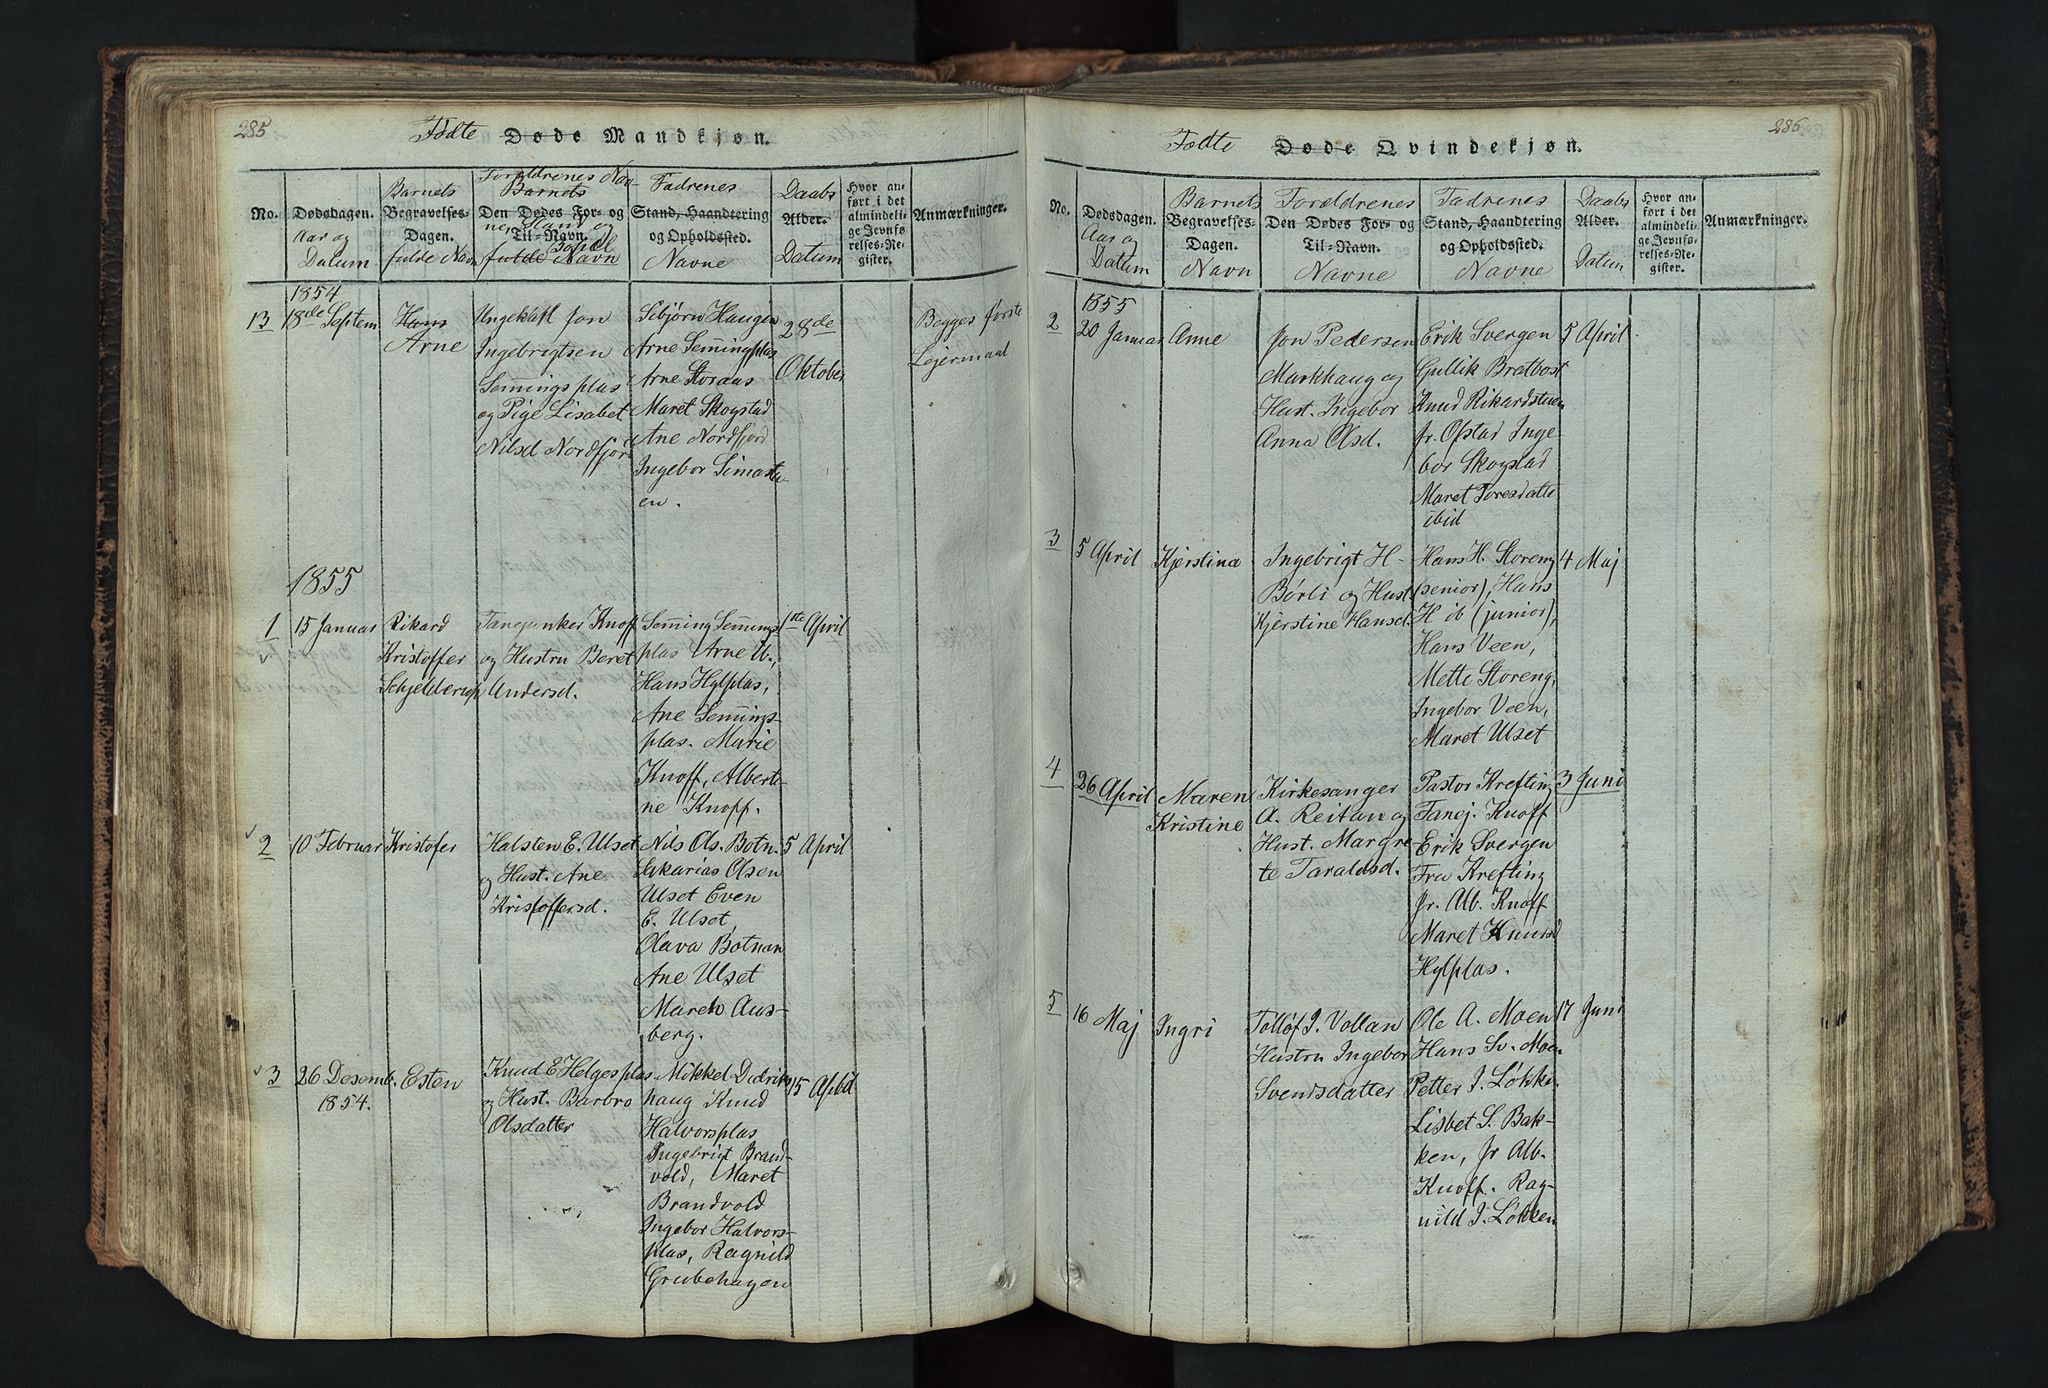 285
Fødte Døde Mandkjøn.
No.
Dødsdagen.
Aar og
Datum
Barnets
Begravelses-
Dagen.
fulde Navn
Forældrenes Nav-
Barnets
Den Dødes For- og
Til-Navn.
fulde Navn
Fadrenes
Stand, Haandtering
og Opholdssted.
Navne
Daabs
Alder.
Datum
Hvor an-
ført i det
almindeli-
ge Jevnfø-
relses-Re-
gister.
Anmærkninger.
1854
13 18de Septem
Hans
Arne
Ungekall Jon
Ingebrigtsen
Semingsplas
og Pige Lisabet
Nilsd Nordfjord
Sebjørn Haugen
Arne Semingplas
Arne Storaas
Maret Skogstad
Ane Nordfjord
Ingebor Simastu-
en.
28de
Oktober
Begges første
Lejermaal
1855
1 15 Januar
Rikard
Kristoffer
Schjelderup
Tanejunker Knoff
og Hustru Beret
Andersd.
Seming Semings
plas Arne U.,
Hans Hylplas,
Ane Semings-
plas. Marie
Knoff, Alberti-
ne Knoff.
1ste April
2 10 Februar
Kristofer
Halsten E. Ulset
og Hust. Ane
Kristoffersd.
Nils Os. Botn.
Sakarias Olsen
Ulset Even
E. Ulset,
Olava Botnan
Ane Ulset
Maren Aus-
berg.
5 April
3 26 Desemb.
1854.
Esten
Knud E Helgesplas
og Hust. Barbro
Olsdatter
Mikkel Didriks
haug Knud
Halvorsplas
Ingebrigt Brand-
vold, Maret
Brandvold
Ingebor Halvors-
plas, Ragnild
Grubehagen
15 April
286
Fødte Døde Qvindekjøn.
No.
Dødsdagen.
Aar og
Datum
Barnets
Begravelses-
Dagen.
Navn
Forældrenes
Den Dødes For- og
Til-Navn.
Navne
Fadrenes
Stand, Haandtering
og Opholdssted.
Navne
Daabs
Alder.
Datum
Hvor an-
ført i det
almindeli-
ge Jevnfø-
relses-Re-
gister.
Anmærkninger.
1855
2 20 Januar
Anne
Jon Pedersen
Markhaug og
Hust. Ingebor
Anna Olsd.
Erik Svergen
Gullik Bretbost
Knud Rikardstuen
Jr. Ofstad Inge-
bor Skogstad
Maret Toresdatte
ibid
5 April
3 5 April
Kjerstina
Ingebrigt H
Børli og Hust
Kjerstine Hansd.
Hans H. Storeng
(senior), Hans
H ib (junior),
Hans Veen,
Mette Storeng,
Ingebor Veen,
Maret Ulset
4 Maj
4 26 April
Maren
Kristine
Kirkesanger
A. Reitan og
Hust. Margre
te Taraldsd.
Pastor Krefting
Tanej. Knoff
Erik Svergen
Fru Krefting
Jr. Alb. Knoff
Maret Knudsd
Hylplas.
3 Juni
5 16 Maj
Ingri
Tolløf J. Vollan
Hustru Ingebor
Svendsdatter
Ole A. Moen
Hans Sv. Moen
Petter J. Løkke.
Lisbet S. Bak-
ken, Jr Alb.
Knoff. Rag-
nild J. Løkken
17 Juni